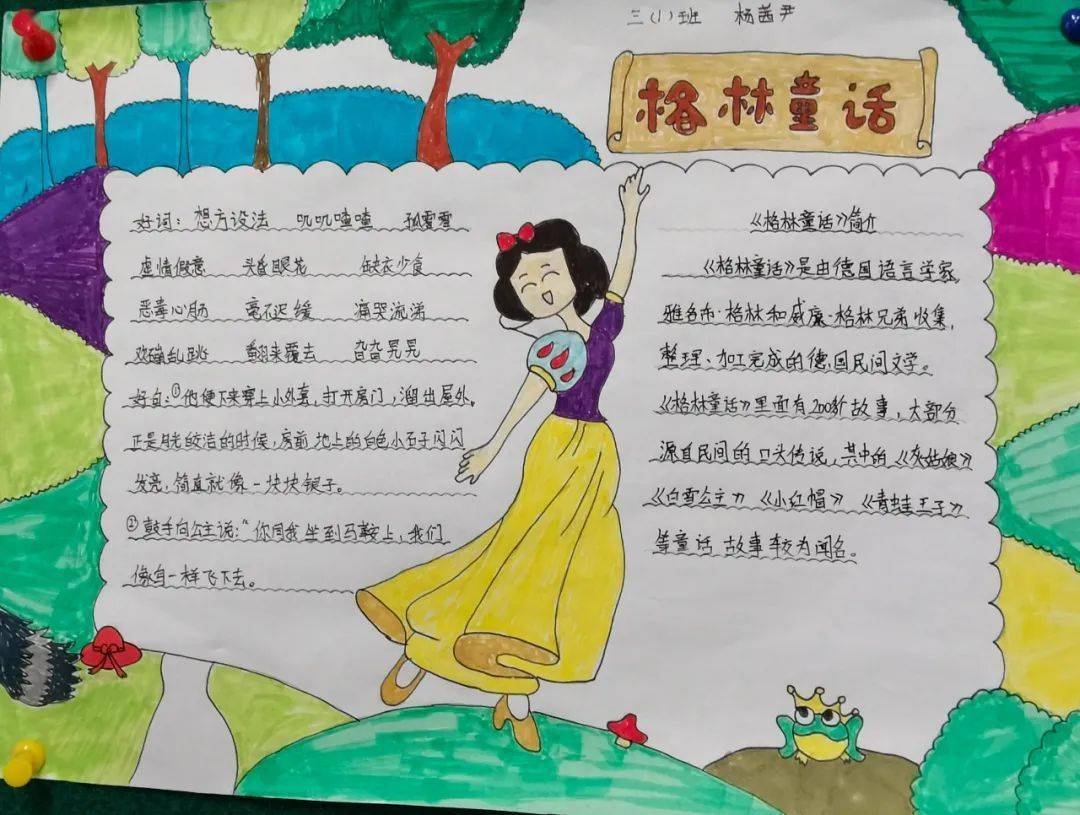 三(1)班 杨茜尹
格林童话
好词：想方设法 叽叽喳喳 孤零零
虚情假意 头昏眼花 缺衣少食
恶毒心肠 毫不迟缓 痛哭流涕
欢蹦乱跳 翻来覆去 摇摇晃晃
好句：①他便下来穿上小外套，打开房门，溜出屋外。
正是月光皎洁的时候，房前地上的白色小石子闪闪
发亮，简直就像一块块银子。
②鼓手向公主说：“你同我坐到马鞍上，我们
像鸟一样飞下去。
《格林童话》简介
《格林童话》是由德国语言学家，
雅各布·格林和威廉·格林兄弟收集，
整理、加工完成的德国民间文学。
《格林童话》里面有200多个故事，大部分
源自民间的口头传说，其中的《灰姑娘》
《白雪公主》《小红帽》《青蛙王子》
等童话故事较为闻名。